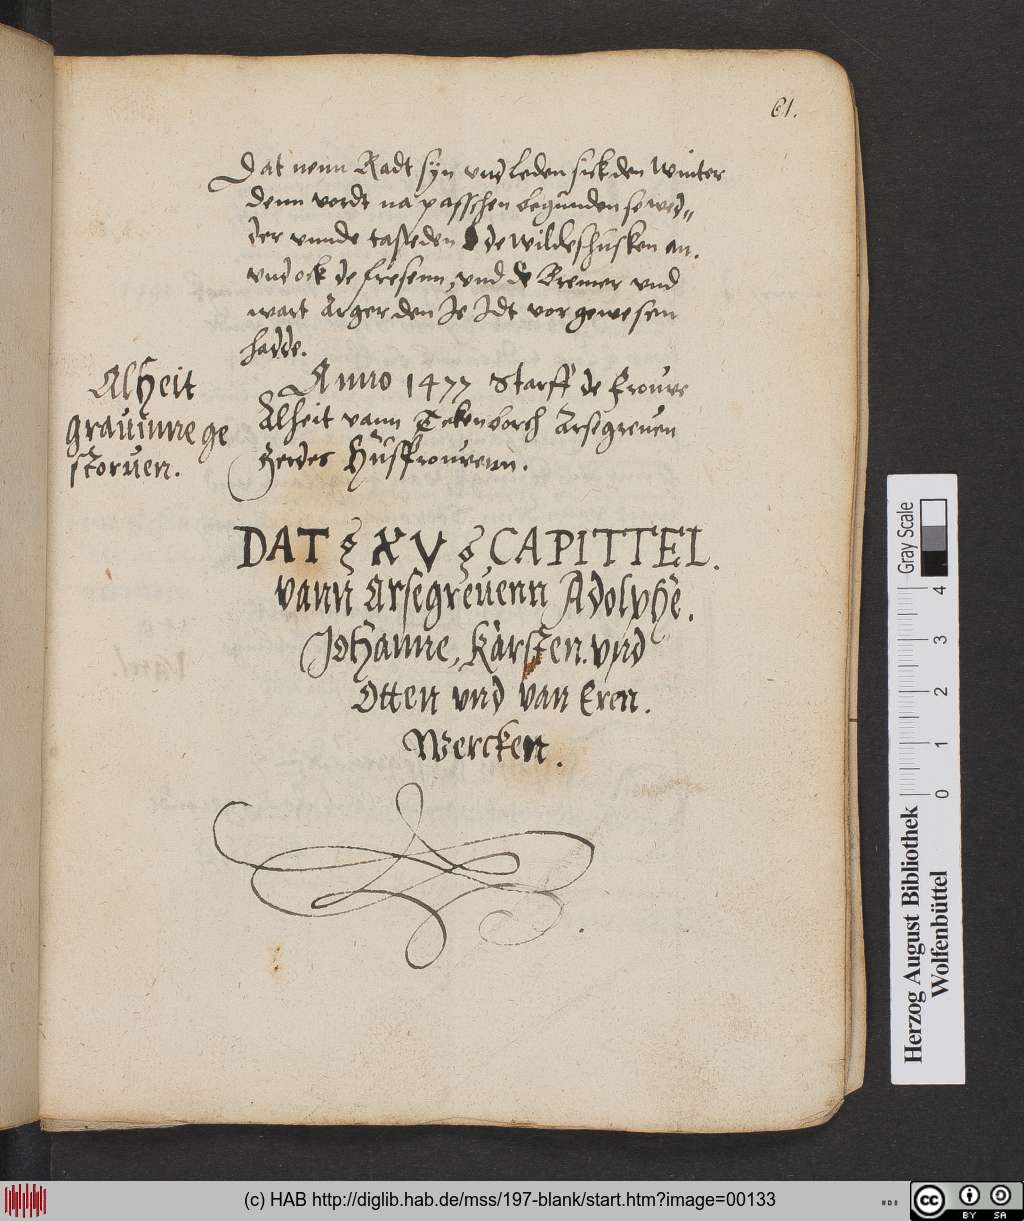 61.
Dat nenn Radt syn vnd leden sick den Winter
denn vordt na passchen begunden se wed„
der vnnde tasteden de Wildeshusken an.
vnd ock de fresenn, vnd de Bremer vnd
wart Arger den Je Idt vor gewesen
hadde.
Alheit
gravinne ge
storven.
Anno 1477 Starff de Frouwe
Alheit vann Tekenborch Arsegreven
Gerdes Husffrouwenn.
DAT § XV § CAPITTEL.
vann Arsegrevenn Adolphe.
Johanne, Karsten. vnd
Otten vnd van Eren.
Wercken.
Gray Scale
4 3 2 1 0
Herzog August Bibliothek
Wolfenbüttel
(c) HAB http://diglib.hab.de/mss/197-blank/start.htm?image=00133
cc BY SA